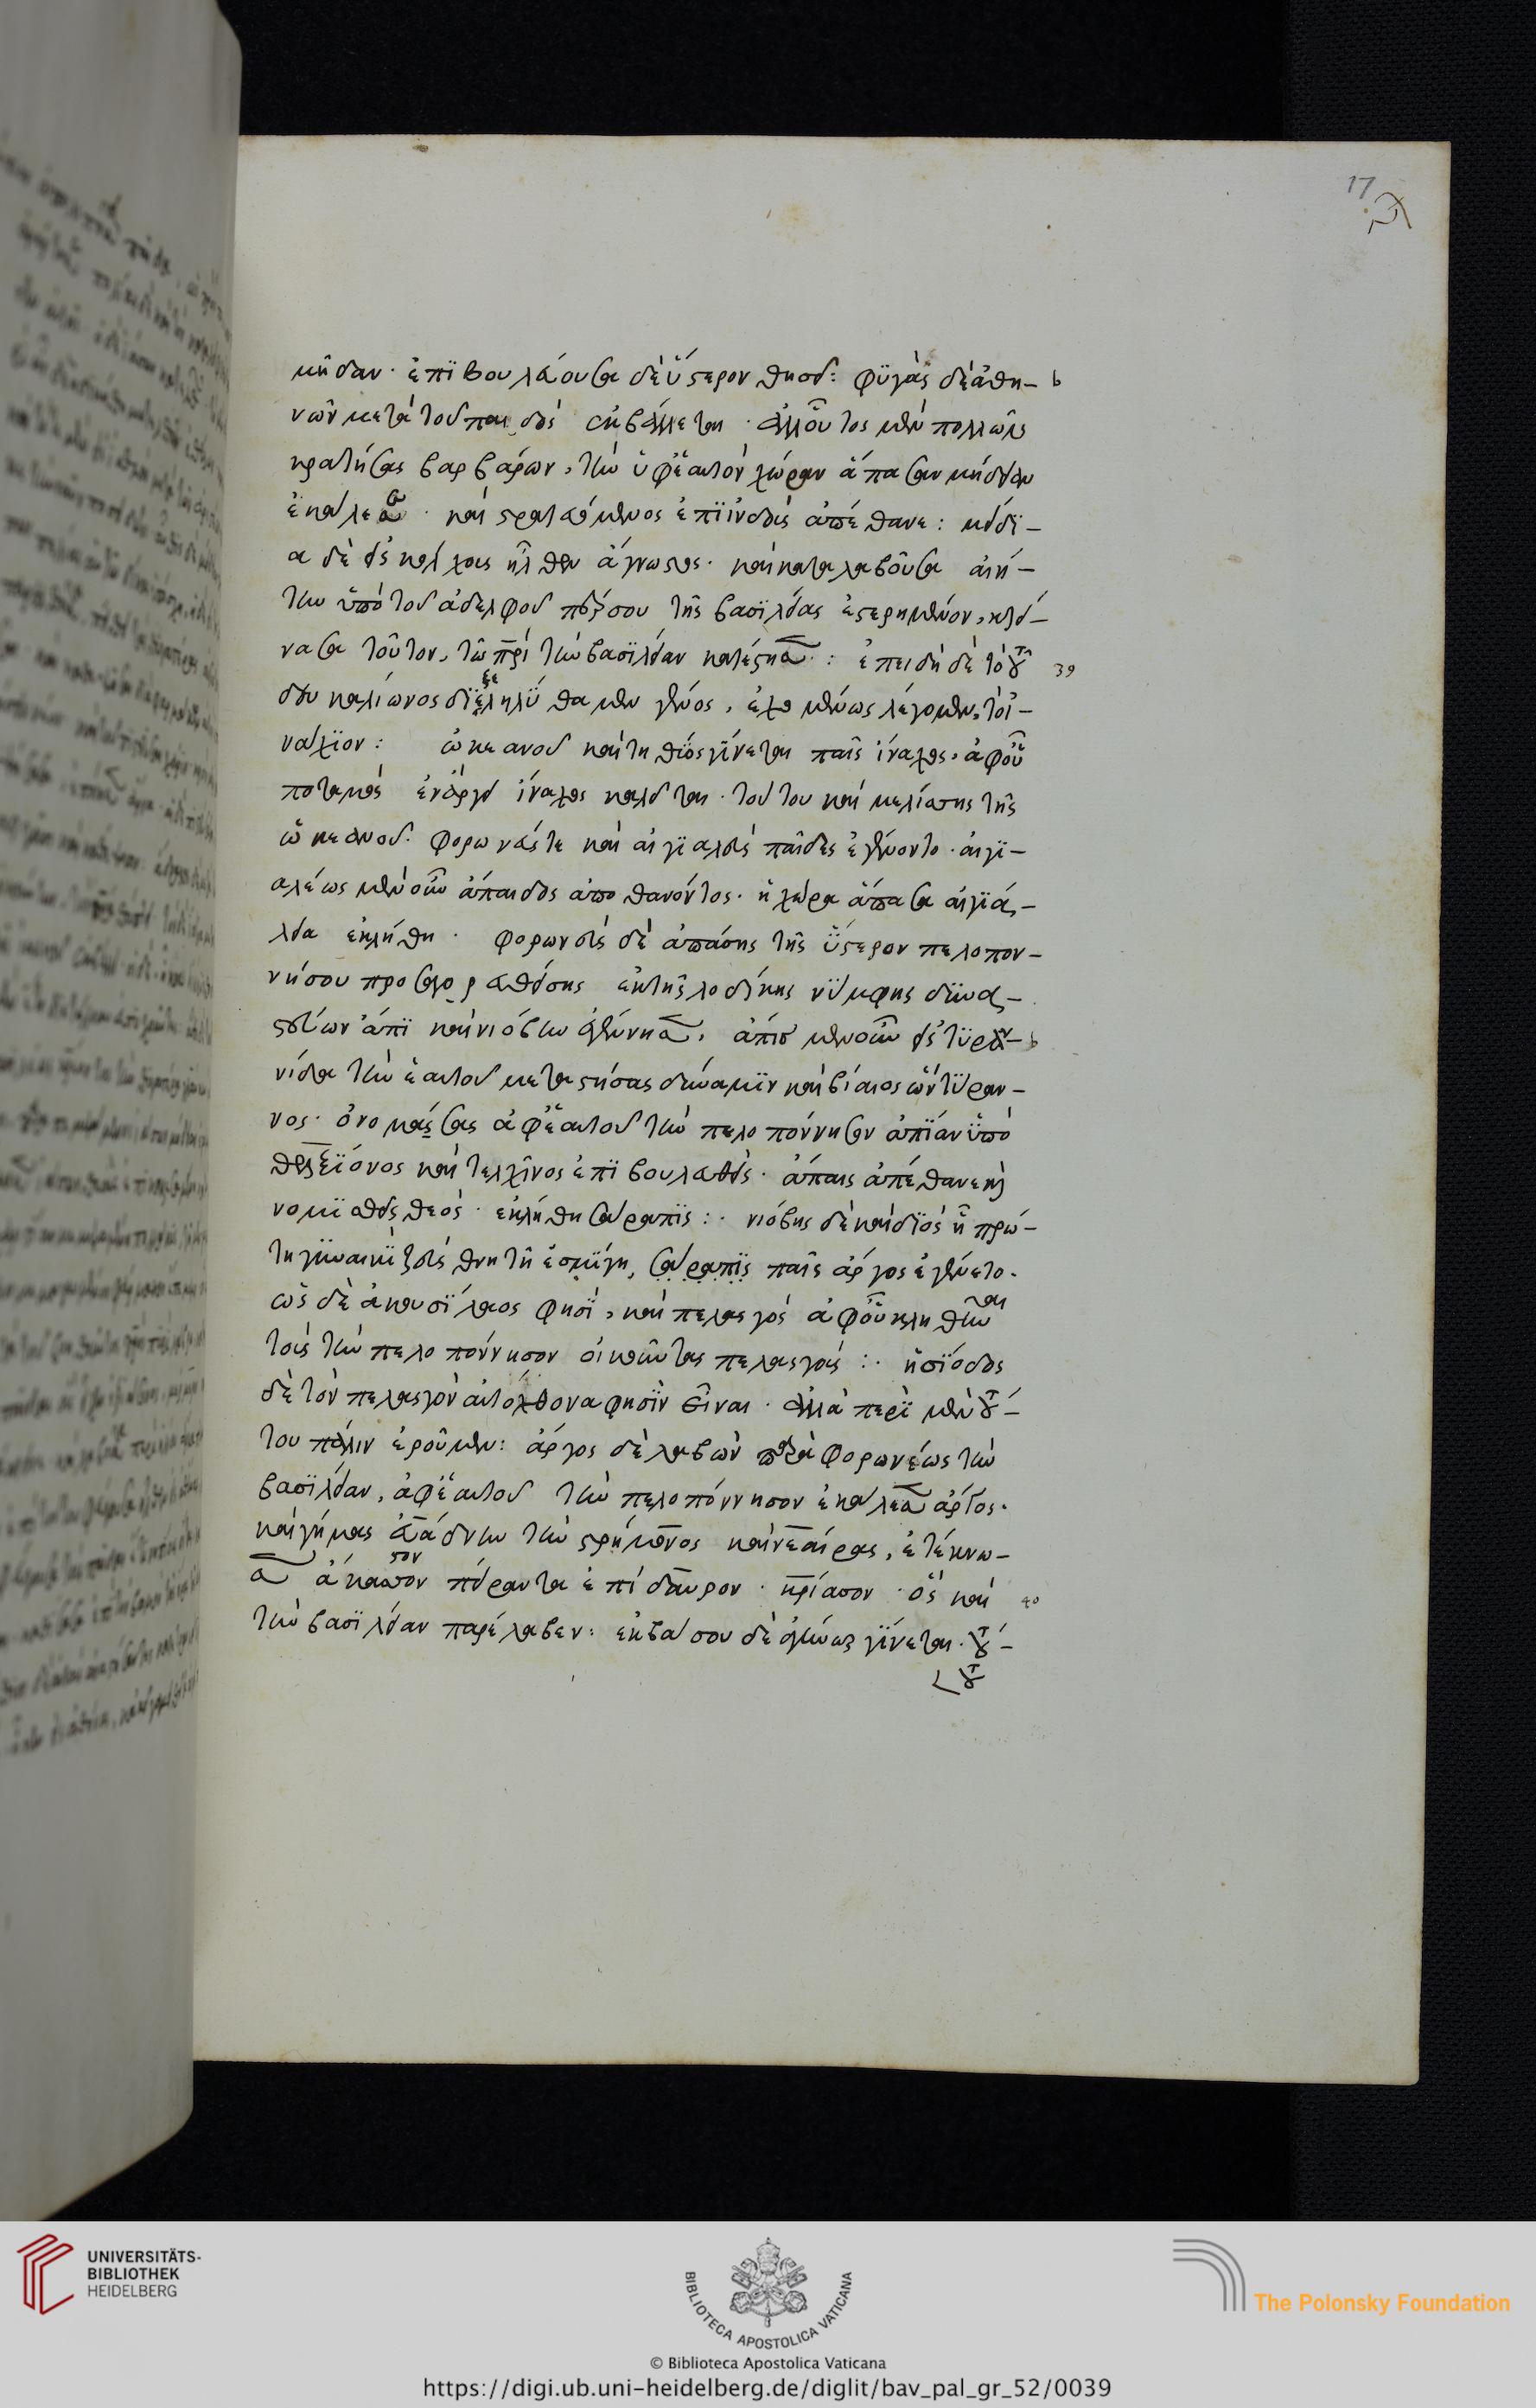 17
μῆδον · ἐπϊβουλεύουσα δὲ ὕστερον θησεῖ : φϋγὰς δὲ ἀθη– b
νῶν μετὰ τοῦ παιδὸς ἐκβάλλεται · ἀλλ' οὗτος μὲν πολλῶν
κρατήσας βαρβάρων, τὴν ὑφ' ἑαυτὸν χώραν ἅπασαν μήδειαν
ἐκάλεσε · καὶ στρατευόμενος ἐπϊ ἰνδοὺς ἀπέθανε : μήδϊ–
α δὲ εἰς κόλχους ἦλθεν ἄγνωστος · καὶ καταλαβοῦσα αἰή–
την ὑπὸ τοῦ ἀδελφοῦ πέρσου τῆς βασϊλείας ἐστερημένον, κτεί–
νασα τοῦτον, τῶ πρὶ τὴν βασϊλείαν κατέστησε : ἐπειδὴ δὲ τὸ τοῦ 39
δευκαλίωνος δϊεξεληλύθαμεν γένος, ἐχομένως λέγομεν, τὸ ἰ–
νάχϊον : ὠκεανοῦ καὶ τηθύος γίνεται παῖς ἴναχος, ἀφ' οὗ
ποταμὸς ἐν ἄργει ἴναχος καλεῖται · τούτου καὶ μελίασης τῆς
ὠκεανοῦ · φορωνεύς τε καὶ αἰγϊαλεὺς παῖδες ἐγένοντο · αἰγϊ–
αλέως μὲν οὖν ἄπαιδος ἀποθανόντος · ἡ χώρα ἅπασα αἰγϊά–
λεια ἐκλήθη · φορωνεὺς δὲ ἁπάσης τῆς ὕστερον πελοπον–
νήσου προσαγορευθείσης ἐκ τῆς λοδίκης νύμφης δϋνασ–
τεύων ἄπϊ καὶ νιόβην ἐγέννησε, ἄπισ μὲν οὖν εἰς τϋραν– b
νίδα τὴν ἑαυτοῦ μεταστήσας δύναμϊν καὶ βίαιος ὢν τύραν–
νος · ὀνομάσας ἀφ' ἑαυτοῦ τὴν πελοπόννησον ἀπϊὰν ὑπὸ
θελξϊόνος καὶ τελχῖνος ἐπϊβουλευθεὶς · ἄπαις ἀπέθανε καὶ
νομϊσθεὶς θεὸς · ἐκλήθη σάραπϊς : · νιόβης δὲ καὶ δϊὸς ἧ πρώ–
τη γϋναικὶ ζεὺς θνητῆ ἐσμίγη, σάραπϊς παῖς ἄργος ἐγένετο ·
ὡς δὲ ἀκουσίλαος φησῒ, καὶ πελασγὸς ἀφ' οὗ κληθῆναι
τοὺς τὴν πελοπόννησον οἰκοῦντας πελασγοὺς : · ἡσίοδος
δὲ τὸν πελασγὸν αὐτόχθονα φησῒν εἶναι · ἀλλὰ περὶ μὲν τού–
του πάλιν ἐροῦμεν : ἄργος δὲ λαβὼν παρὰ φορωνέως τὴν
βασϊλείαν, ἀφ' ἑαυτοῦ τὴν πελοπόννησον ἐκάλεσε ἄργος ·
καὶ γήμας εὐάδνην τὴν στρήμονος καὶ νεαίρας, ἐτέκνω–
σε ἄκβασον πείραντα ἐπίδαυρον · κρίασον · ὃς καὶ 40
τὴν βασϊλείαν παρέλαβεν : ἐκβάσου δὲ ἀγήνωρ γίνεται · τού–
του
UNIVERSITÄTS-
BIBLIOTHEK
HEIDELBERG
BIBLIOTECA APOSTOLICA VATICANA
© Biblioteca Apostolica Vaticana
The Polonsky Foundation
https://digi.ub.uni-heidelberg.de/diglit/bav_pal_gr_52/0039